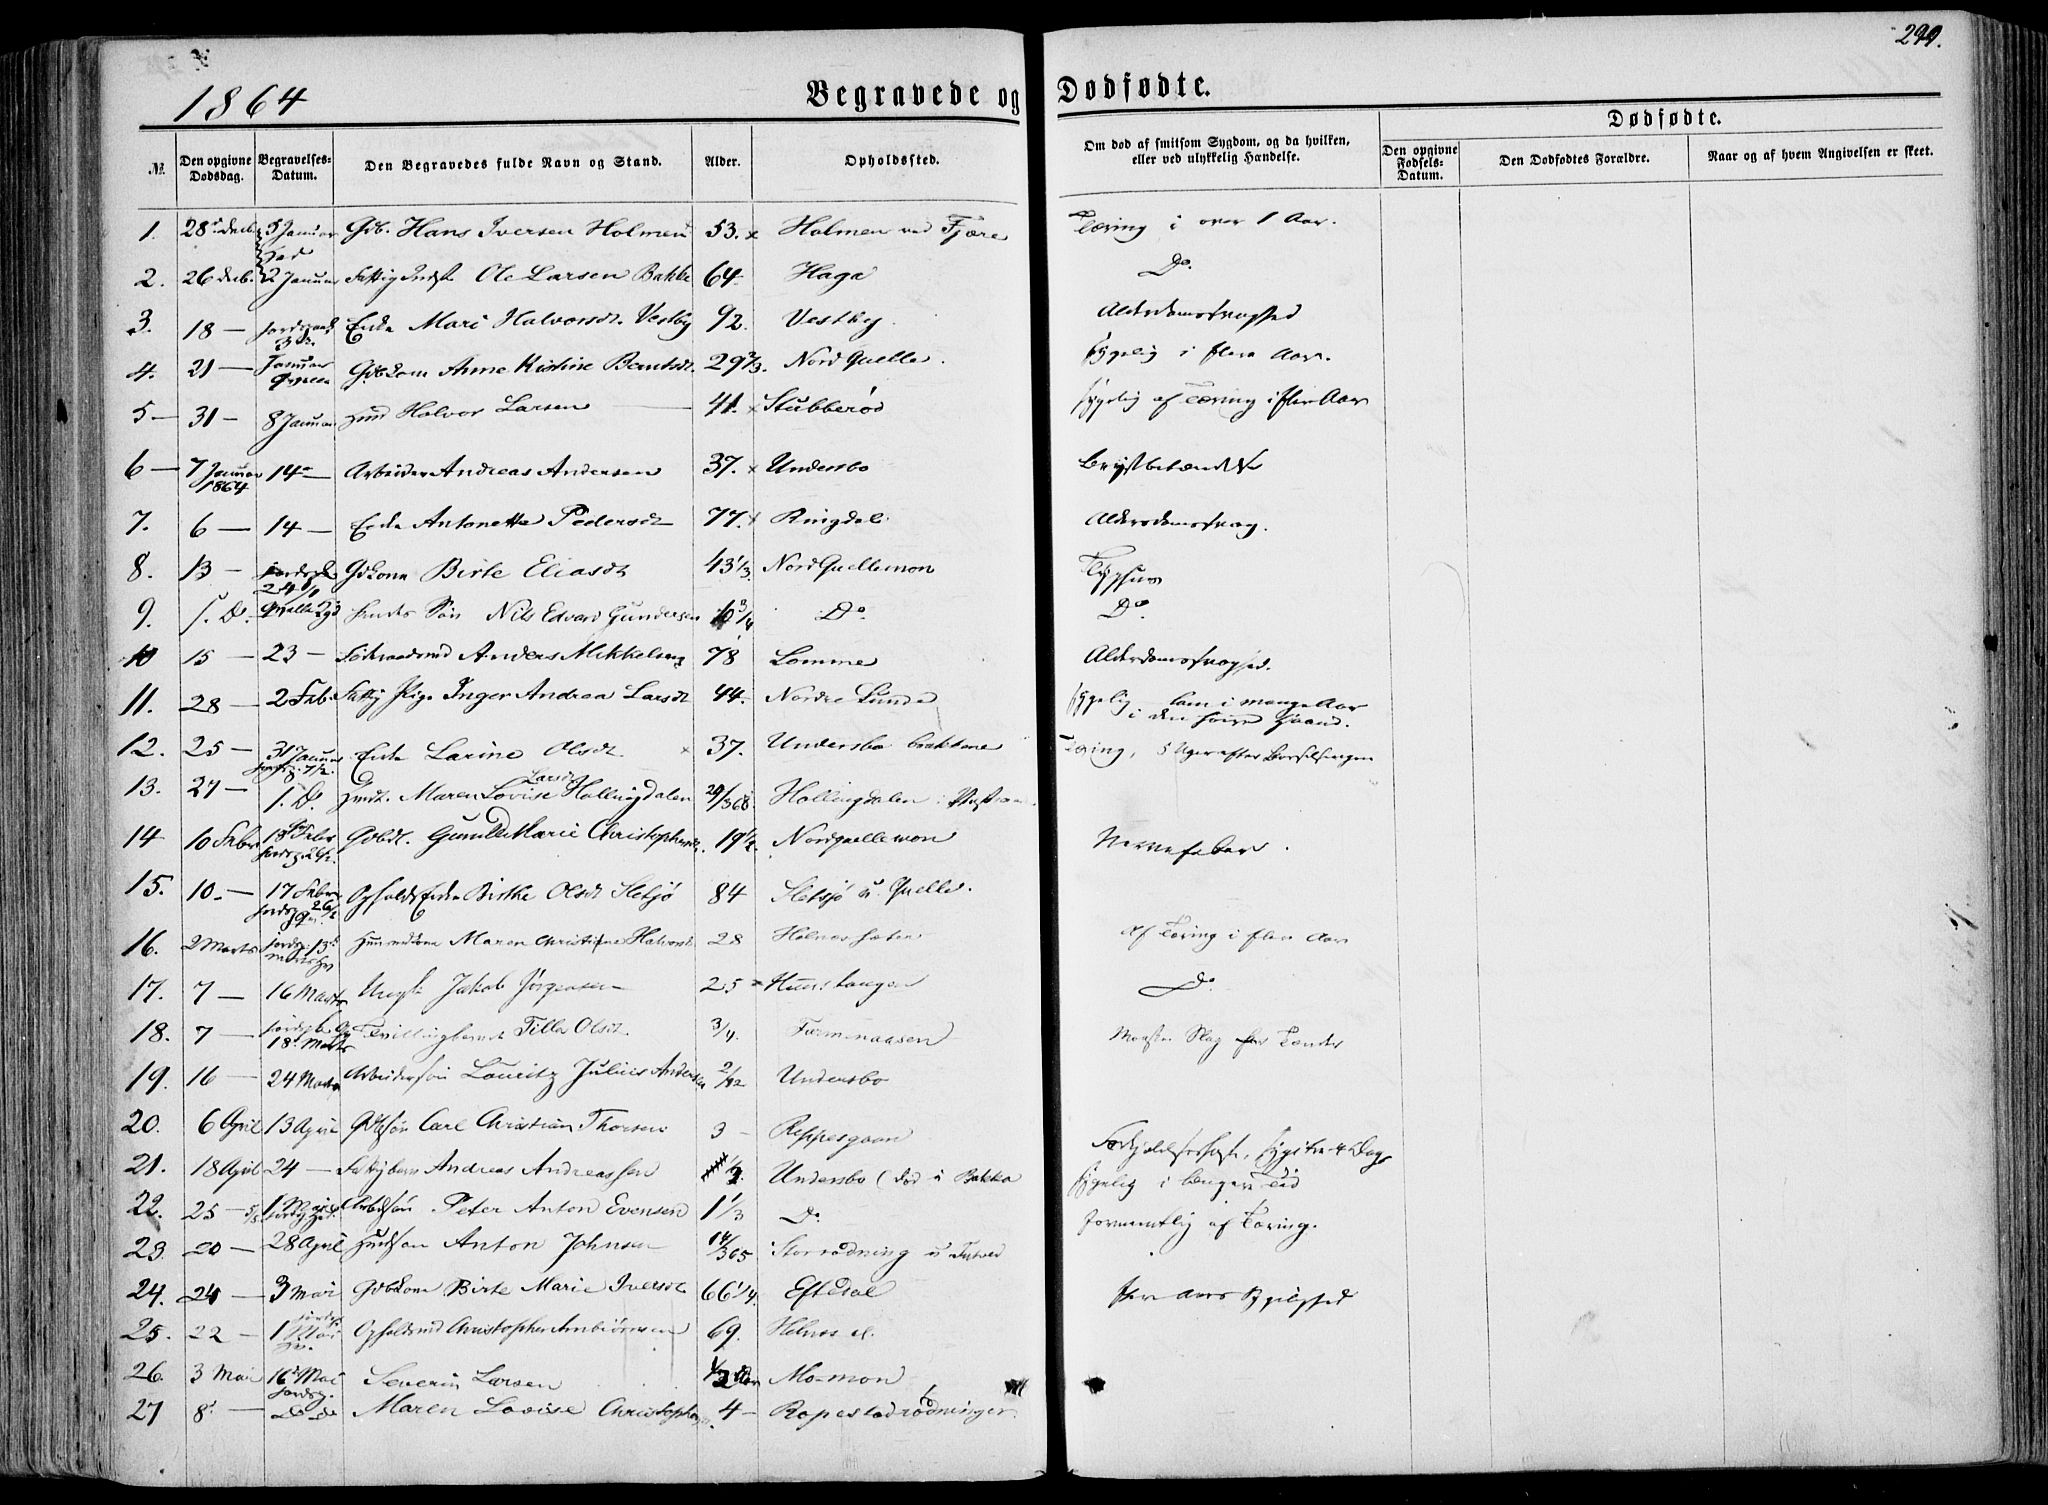 299.
1864
Begravede og Dødfødte.
Dødfødte.
№ Den opgivne Dødsdag. Begravelses-Datum. Den Begravedes fulde Navn og Stand. Alder. Opholdssted. Om død af smitsom Sygdom, og da hvilken, eller ved ulykkelig Hændelse. Den opgivne Fødsels-Datum. Den Dødfødtes Forældre. Naar og af hvem Angivelsen er skeet.
1. 28 Decb. 5 Januar Gdb. Hans Iversen Holmen 53. x Holmen ved Fjære Tæring i over 1 Aar.
2. 26 Decb. 2 Januar Fattig Ole Larsen Bakke 64 Haga Do.
3. 18 — Enke Mari Halvorsdt. Vestby 92. Vestby Alderdomssvaghed
4. 21 — Januar Anne Kistine Berntsdt. 29 2/3. Nord Quelle. sygelig i flere Aar.
5 — 31 — 8 Januar Halvor Larsen — 41. x Stubberød sygelig af Tæring i flere Aar
6 — 7 Januar 1864 14 — Arbeider Andreas Andersen 37. x Undersbo Brystbetændelse
7. 6 — 14 — Enke Antonette Pedersdt 77. x Ringdal Alderdomssvag.
8. 13 — Gdkone Birte Eliasdt 43 1/3. Nord Quellemon Typhus
9. s. D. hendes Søn Nils Edvard Gundersen 10 3/4 Do. Do.
10 15 — 23 — Anders Mikkelsen 78 Lomme Alderdomssvaghed.
11. 28 — 2 Febr Fattig Pige Inger Andrea Larsdt 44. Nordre Lunde sygelig lam i mange Aar i den høire Haand.
12. 25 — 31 Januar jordsp. 7/2. Enke Larine Olsdt x 37. Undersbo brækkene Tæring, 5 Uger efter Barselsengen
13. 27 — s. D. Maren Lovise Larsdt Hallingdalen 29/365 Hallingdalen
14 10 Febr 18 Febr jordsp. 26/2. Gdbdt. Gunild Marie Christophersdt. 19 1/2. Nordquellemon Nervefeber.
15. 10 — 17 Febr jordsp. 26/2 Opholds Enke Birthe Olsdt Sletsjø 84 Sletsjø u. Quelle.
16. 2 Marts jordsp. 13 Husmdkone Maren Christine Halvorsdt 28 Holnessæter Af Tæring i flere Aar
17. 7 — 16 Marts Ungk. Jakob Jørgensen 25 x Huurslaugen Do.
18. 7 — 18 Marts Tvillingbarnet Tilla Olsdt. 3/4. Farmenaasen Maaske Slag for Tænder
19. 16 — 24 Marts Arbeidersøn Lauritz Julius Andersen 2/12 Undersbo
20. 6 April 13 April Gdbsøn Carl Christian Thorsen 3 — Reppesgaan Forkjølelseshoste, syg i 4 Dage
21. 18 April 24 — Fattigbarn Andreas Andreassen 1/2. Undersbo (død i Bakke sygelig i længere Tid
22. 25 — Arbdsøn Peter Anton Evensen 1 1/3 Do. formentlig af Tæring.
23. 20 — 28 April Husdsøn Anton Johnsen 14/365 Storrødning u Tutved
24. 24 — 3 Mai Gdbkone Birte Marie Iversdt 66 1/4. Eftedal flere Aars Sygelighed
25. 22 — 1 Mai Opholdsmd Christopher Ambiørnsen 69. Holnes
26. 3 Mai 16 Mai jordsp. Severin Larsen 1/2 Mo-mon
27 8 — Do Do Maren Lovise Christophersdt. 4 — Ropestadrødningen